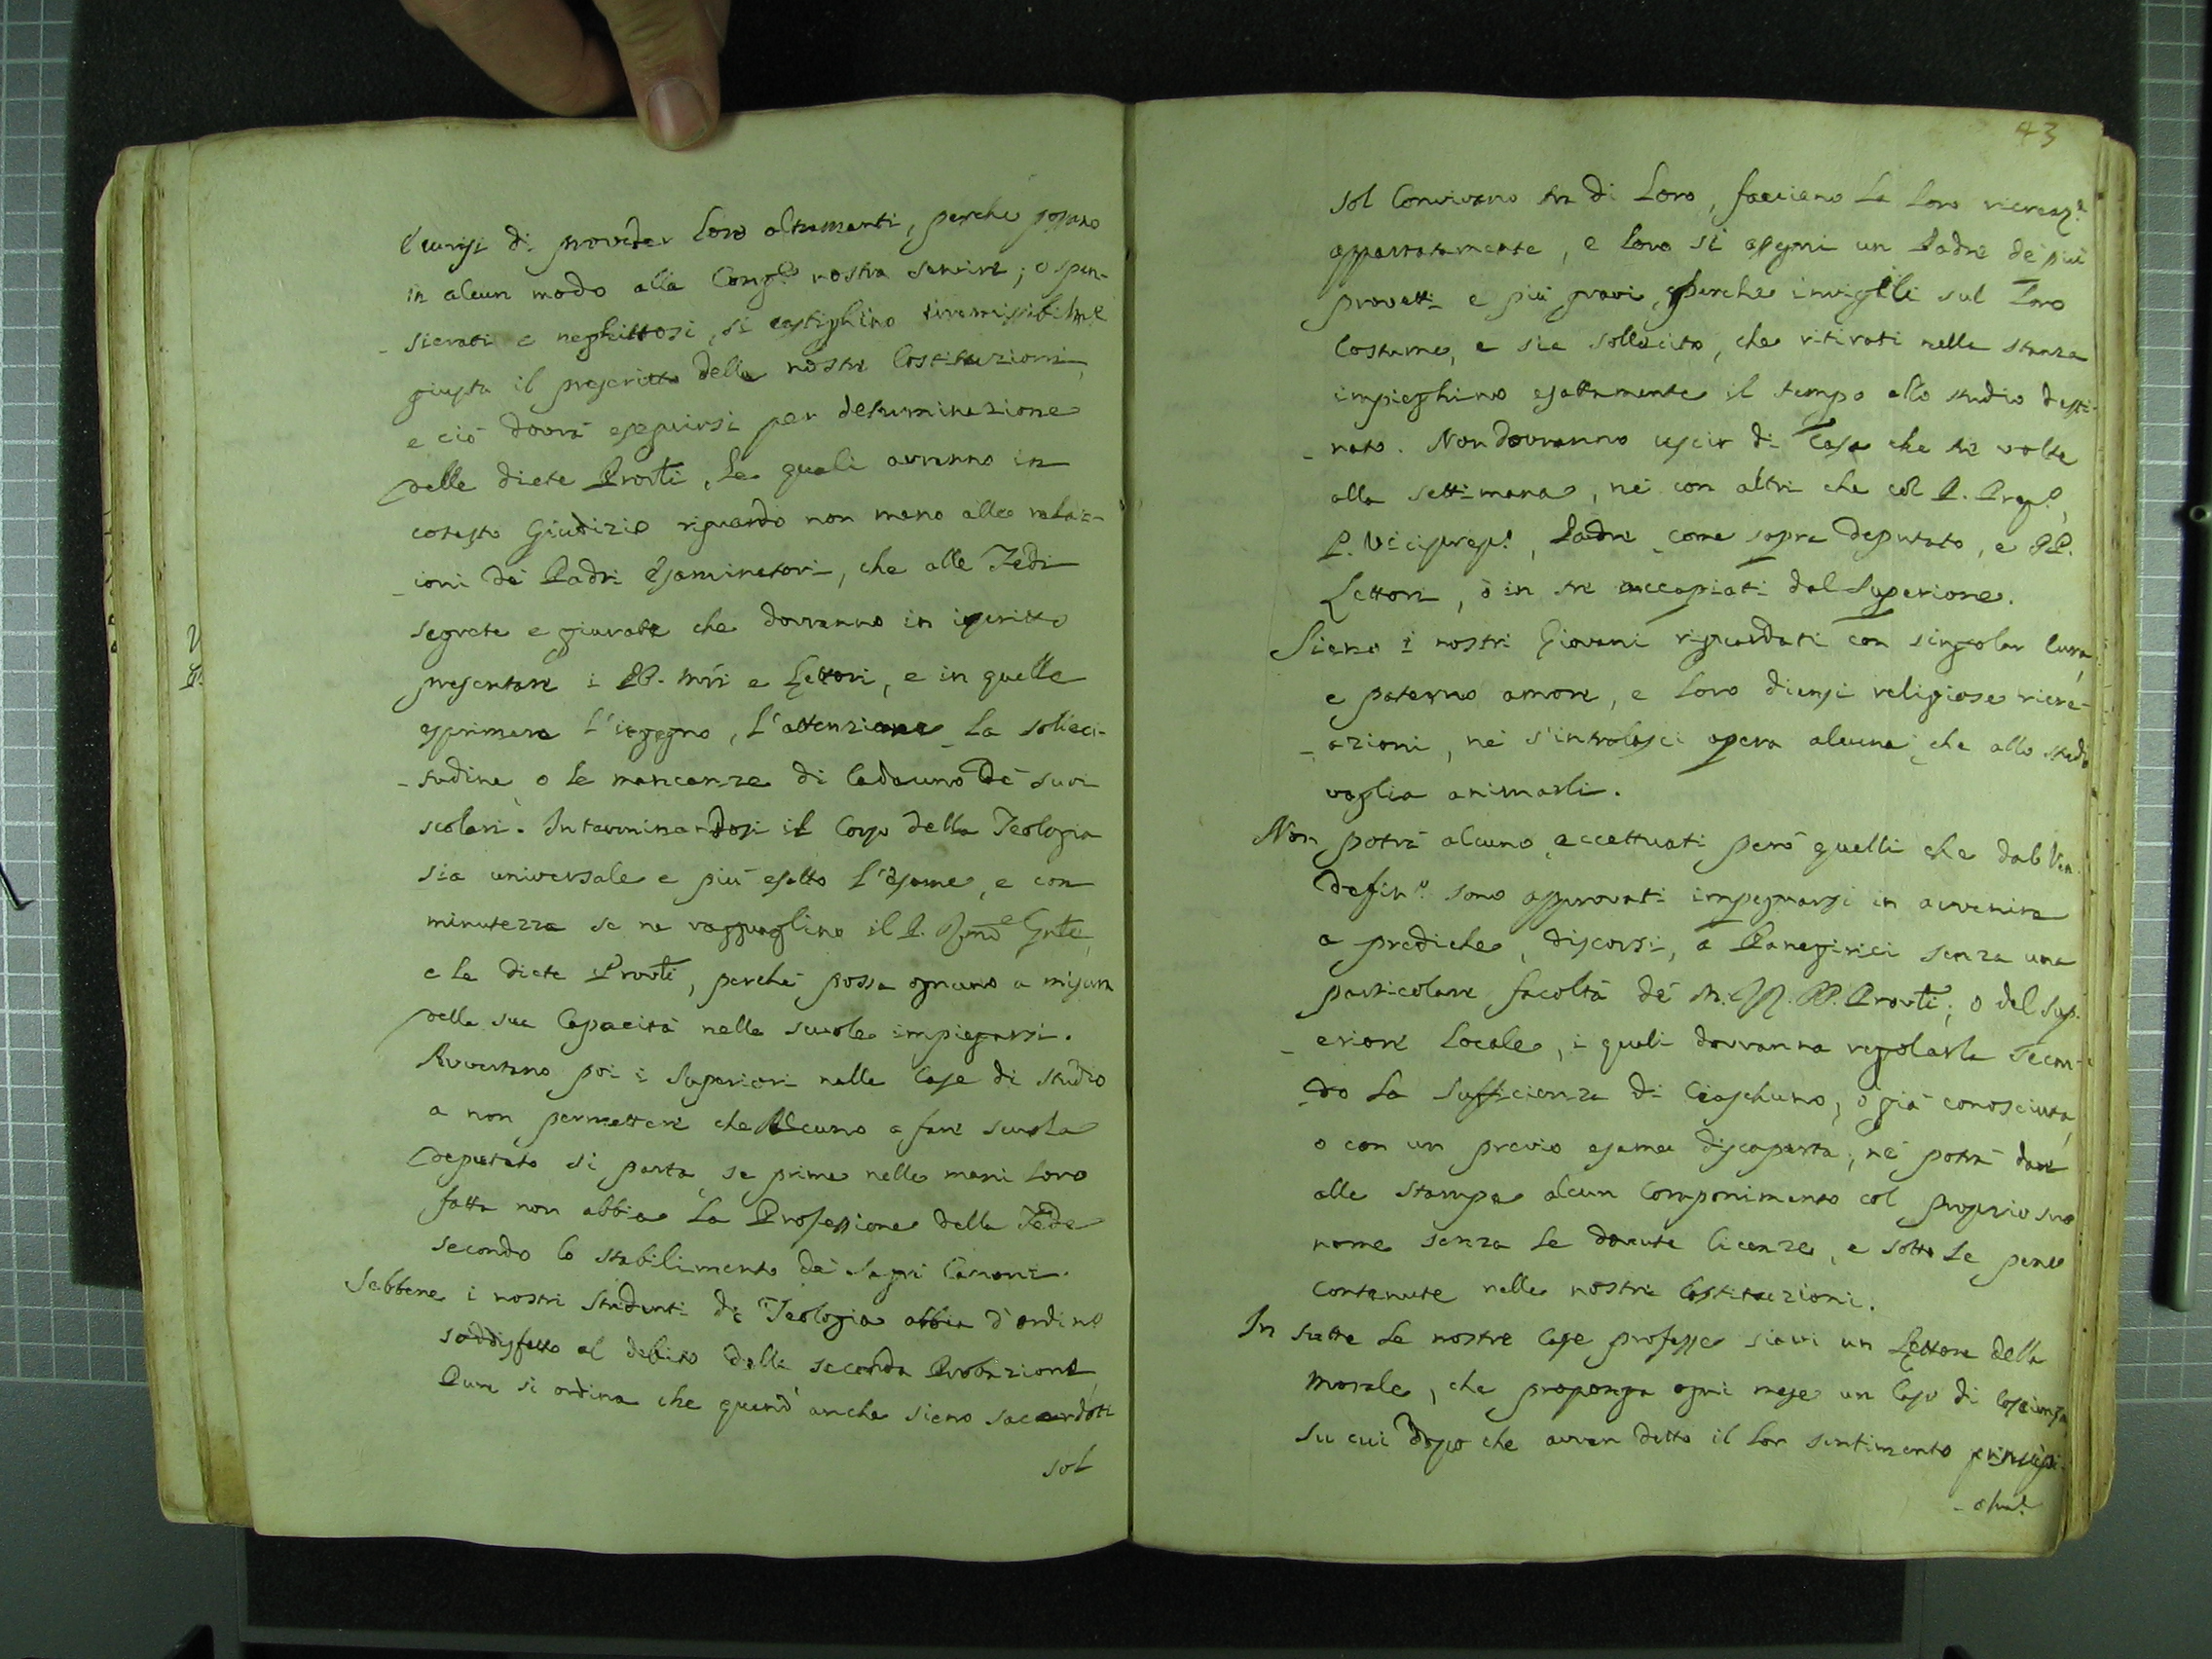 di proveder loro altramenti, perche possano
in alcun modo alla Congne nostra servire; o spen-
-sierati e neghittosi, si castighino irremissibilme
giusta il prescritto delle nostre Costituzioni,
e ciò dovrà eseguirsi per determinazione
delle diete Provli, le quali avranno in
cotesto Giudizio riguardo non meno alle relaz-
-ioni dè Padri Esaminatori, che alle Fedi
segrete e giurate che dovranno in iscritto
presentare i PP. Mri e Lettori, e in quelle
esprimere l'ingegno, l'attenzione, la solleci-
-tudine o le mancanze di Cadauno dè suoi
scolari. Interminandosi il Corso della Teologia
sia universale e più esatto l'Esame, e con
minutezza se ne ragguaglino il P. Rmo Gnle,
e le diete Provli, perchè possa ognuno a misura
della sua Capacità nelle scuole impiegarsi.
Avvertano poi i Superiori nelle Case di studio
a non permettere che Alcuno a fare scuola
deputato si parta, se prima nelle mani loro
fatta non abbia la Professione della Fede
secondo lo stabilimento dè Sagri Canoni.
Sebbene i nostri Studenti di Teologia abbia d'ordine
soddisfatto al debito della seconda Probazione,
Pure si ordina che quand' anche sieno sacerdoti
sol
43
sol Convivano tra di Loro, facciano la loro ricreazne
appartatamente, e loro si assegni un Padre dè più
provetti e più gravi, perche invigili sul Loro
Costume, e sia sollecito, che ritirati nelle stanze
impieghino esattamente il tempo allo studio desti-
-nato. Non dovranno uscir di Casa che tre volte
alla settimana, nè con altri che col P. Prepo,
P. Viceprepo, Padre come sopra deputato, e PP.
Lettori, ò in tre accopiati dal Superiore.
Sieno i nostri Giovani riguardati con singolar cura,
e paterno amore, e loro diensi religiose ricre-
-azioni, nè s'intralasci opera alcuna che allo studio
voglia animarli.
Non potrà alcuno, eccettuati però quelli che dal Ven.
Definro sono approvati impegnarsi in avvenire
a prediche, discorsi, a Panegirici senza una
particolare facoltà dè M. RR. PP. Provli, o del Sup-
-eriore Locale, i quali dovranno regolarla secon-
-do la sufficienza di Ciaschuno, ò già conosciuta,
o con un previo esame discoperta, nè potrà dare
alle stampe alcun Componimento col proprio suo
nome senza le dovute licenze, e sotto le pene
contenute nelle nostre Costituzioni.
In tutte le nostre Case professe siavi un Lettore della
Morale, che proponga ogni mese un Caso di Coscienza
su cui dopo che avran detto il lor sentimento principi-